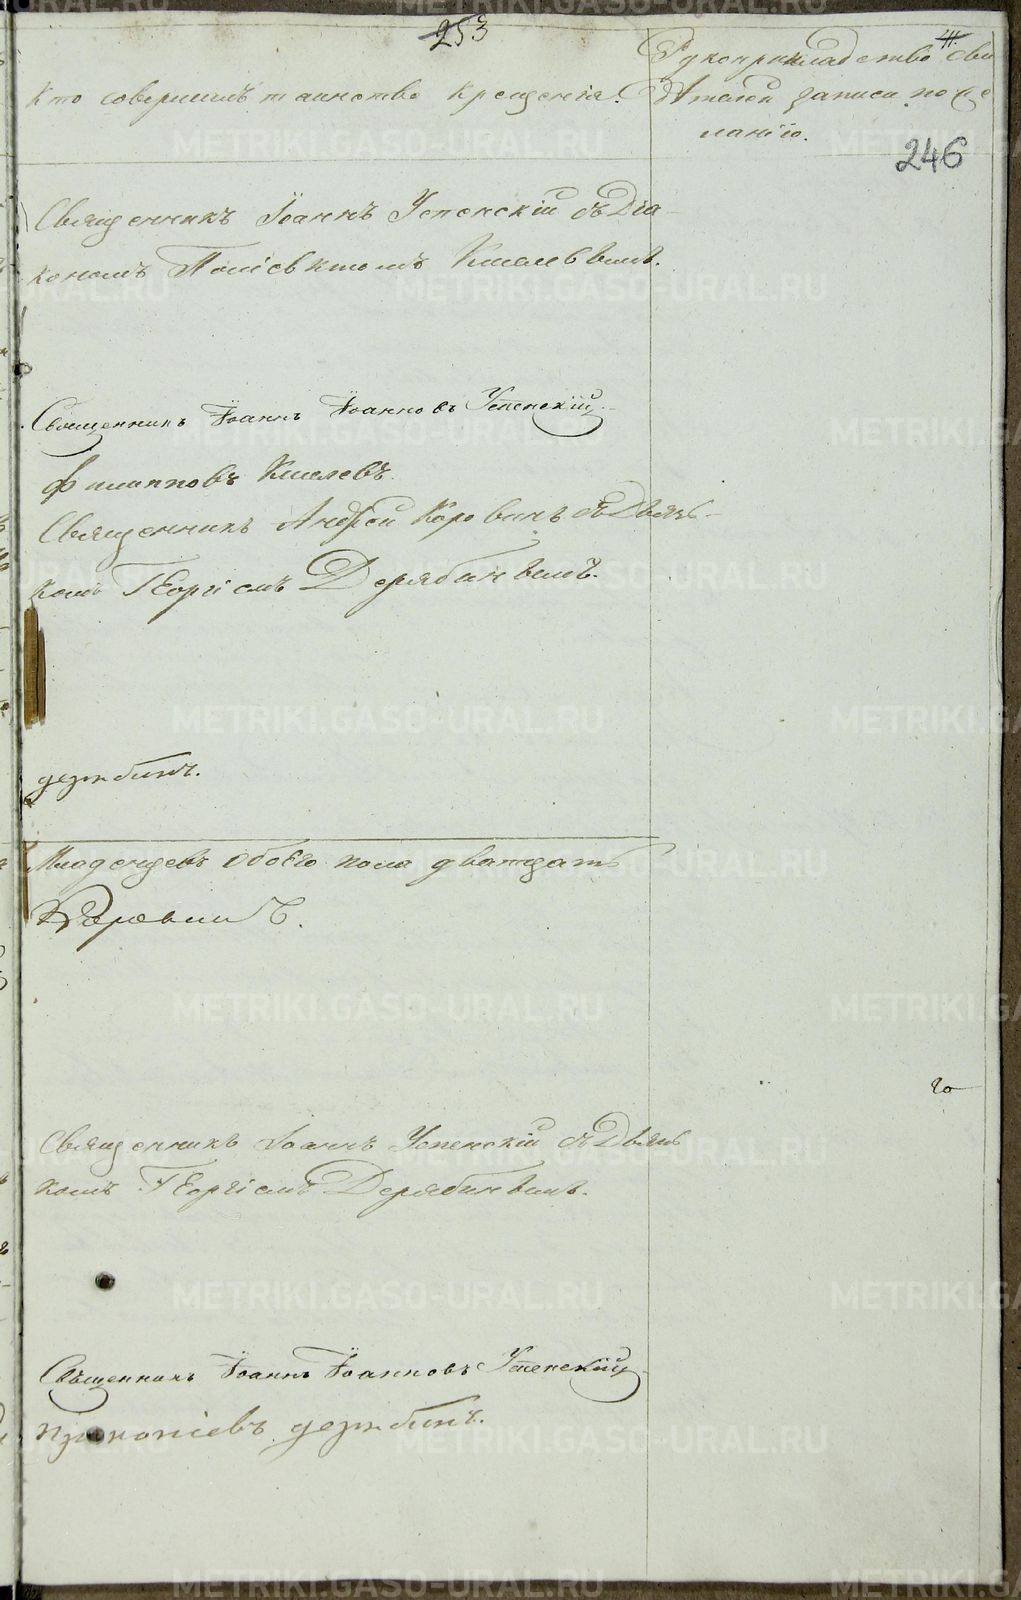 253
Кто совершилъ таинство крещенія.
Рукоприкладство сви
дѣтелей записи по же
ланію.
246
Священникъ Іоаннъ Успенскій съ Діа
кономъ Поліевктомъ Киселевымъ.
Священникъ Іоаннъ Іоанновъ Успенскій
Филипповъ Киселевъ.
Священникъ Андрей Коровинъ съ Дьяч
комъ Георгіемъ Дерябинымъ.
дерябинъ.
Младенцевъ обоего пола дватцать
20
Священникъ Іоаннъ Успенскій съ Дьяч
комъ Георгіемъ Дерябинымъ.
Священникъ Іоаннъ Іоанновъ Успенскій
дерябинъ.
METRIKI.GASO-URAL.RU